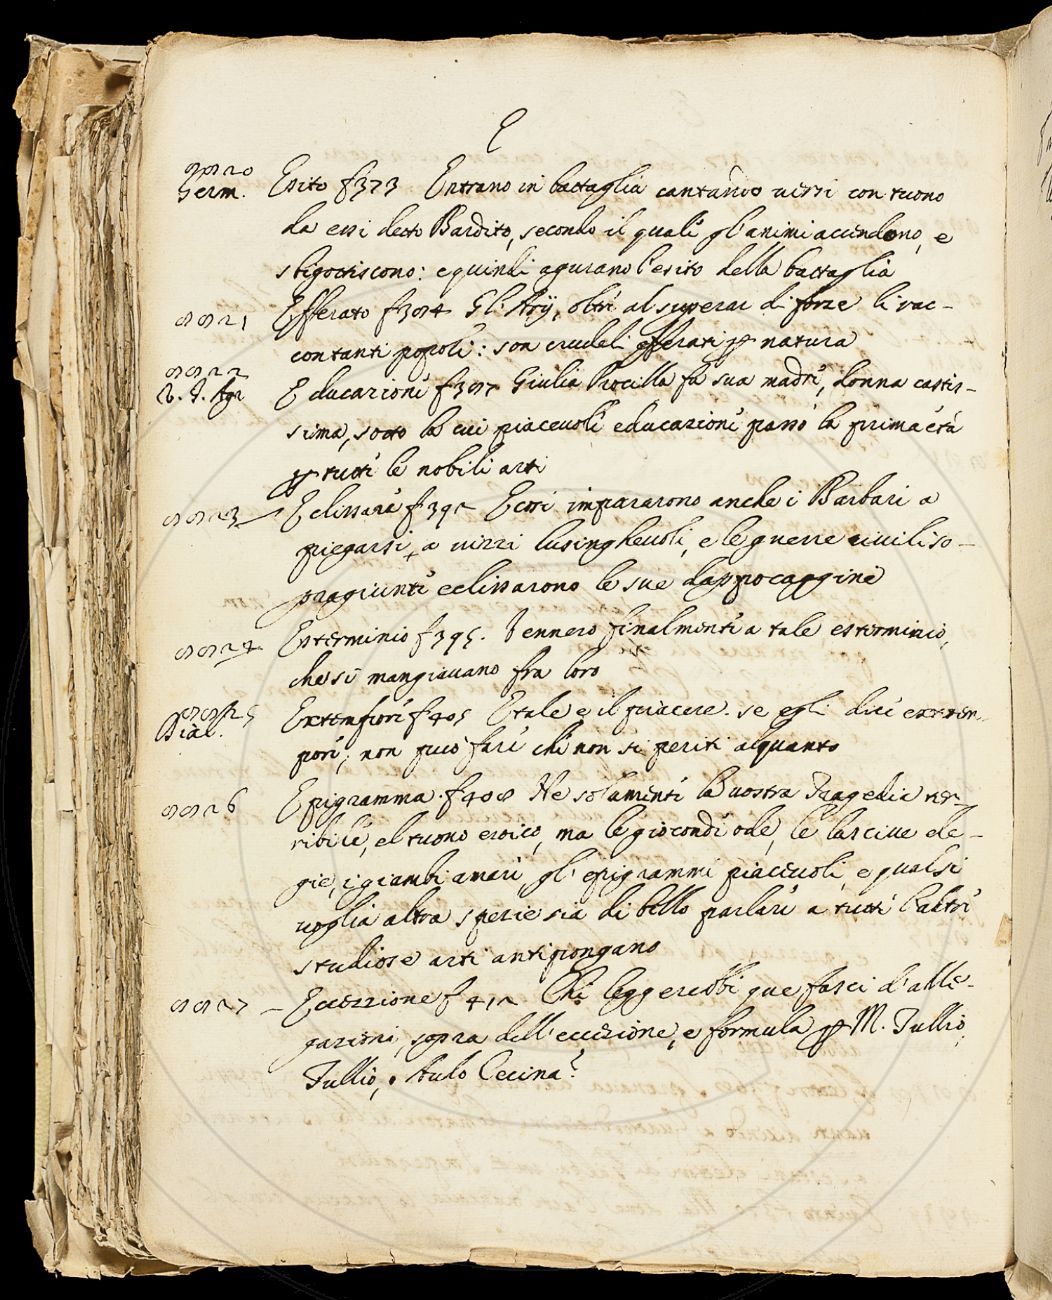 E
8820
Germ.
Esito f 373 Entrano in battaglia cantando uersi con tuono
da essi detto Bardito, secondo il quale gl'animi accendono, e
sbigottiscono: e quindi agurano l'esito della battaglia
8821 Efferato f 384 Gl'Arij, oltre al superar di forze li rac-
contanti popoli: son crudeli efferati ꝑ natura
8822
V. J. Agr
Educazione f 387 Giulia Procilla fu sua madre, donna castis-
sima, sotto la cui piaceuole educazione passò la prima età
ꝑ tutte le nobili arti
8823 Eclissare f 392 Ecosi impararono anche i Barbari a
piegarsi a uizzi lusingheuoli, e le guerre ciuili so-
pragiunte eclissarono le sue dappocaggine
8824 Esterminio f 395. Vennero finalmente a tale esterminio,
che si mangiauano fra loro
8825
Dial.
Extempore f 405 E tale e il piacere. se egli dice extem-
pore, non può fare che non si periti alquanto
8826 Epigramma f 408 Ne solamente la uostra Tragedia ter-
ribile, el tuono eroico, ma le gioconde ode, le lasciue ele-
gie, i giambi amari gl'epigrammi piaceuoli, e qual si
uoglia altra sperie sia di bello parlare a tutte l'altre
studiose arti antipongano
8827 Eccezzione f 412 Chi leggerebbe que fasci d'alle-
gazioni, sopra dell'eccezione, e formula ꝑ M. Tullio,
Tullio, e Aulo Cecina?